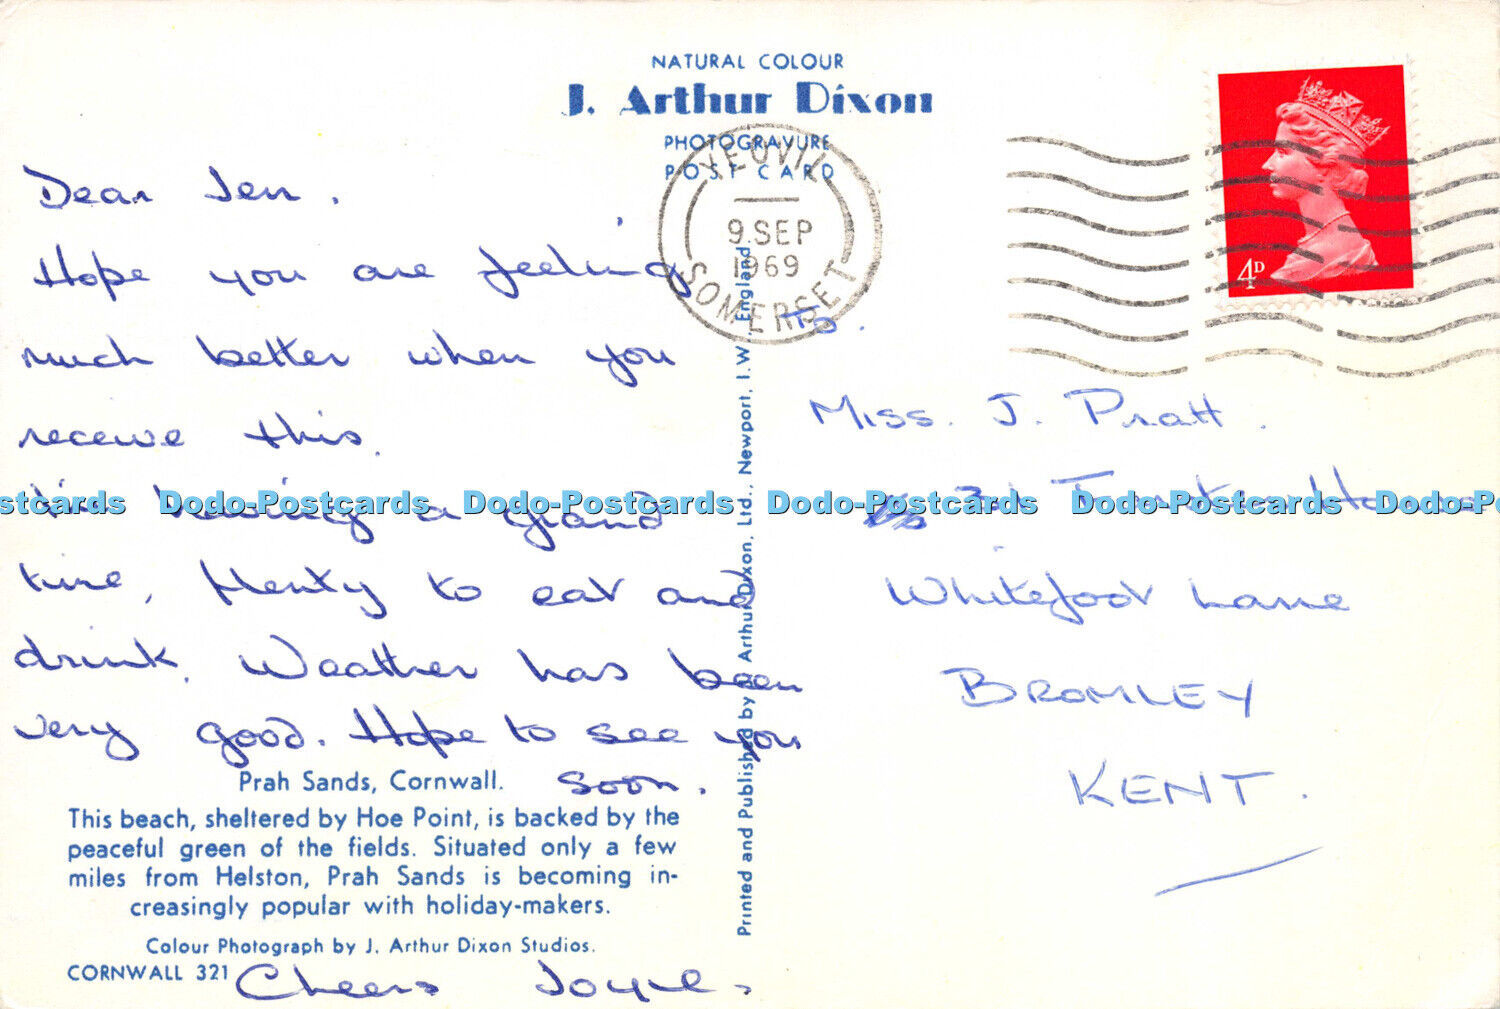 NATURAL COLOUR
J. Arthur Dixon
PHOTOGRAVURE
POST CARD
YEOVIL
9 SEP
1969
SOMERSET
4D
Dear Jen.
Hope you are feeling
much better when you
receive this.
I'm having a grand
time, plenty to eat and
drink. Weather has been
very good. Hope to see you
soon.
Prah Sands, Cornwall.
This beach, sheltered by Hoe Point, is backed by the
peaceful green of the fields. Situated only a few
miles from Helston, Prah Sands is becoming in-
creasingly popular with holiday-makers.
Colour Photograph by J. Arthur Dixon Studios.
CORNWALL 321
Cheers Joyce.
Printed and Published by J. Arthur Dixon, Ltd., Newport, I.W., England
To.
Miss. J. Pratt.
House
Whitefoot Lane
BROMLEY
KENT.
Dodo-Postcards Dodo-Postcards Dodo-Postcards Dodo-Postcards